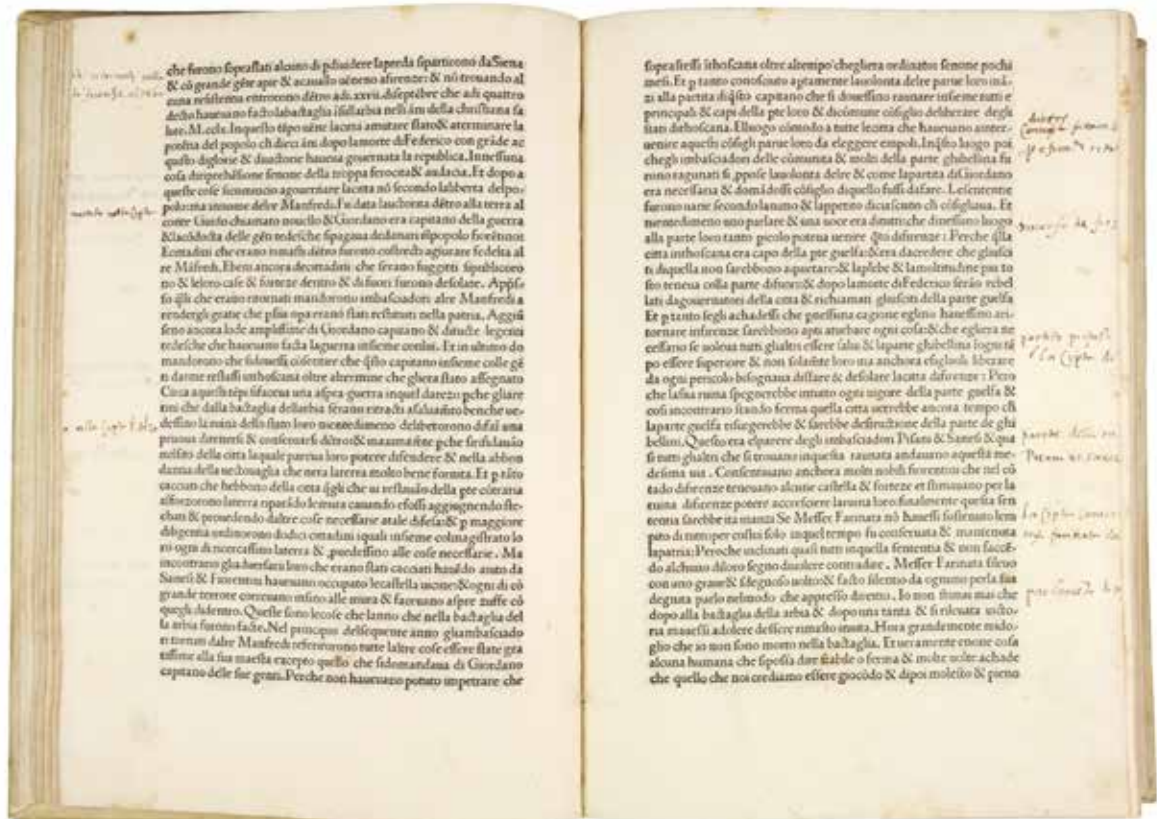 che furono soprastati alcuno di p diuidere la perda si partirono da Siena
& cō grande gēte apie & acauallo uēneno afirenze: & nō trouando al
cuna resistentia entrorono dētro adi .xxvii. di septēbre che adi quattro
decto haueuano facto la bactaglia i sullarbia nelli āni della christiana sa
lute .M.cclx. In questo tēpo uēne lacitta amutare stato & aterminare la
potētia del popolo ch dieci āni dopo la morte di Federico con grāde ac
quisto di glorie & di uictorie haueua gouernata la republica. In nessuna
cosa di riprēhēsione senone della troppa ferocita & audacia. Et dopo a
queste cose si comincio agouernare lacitta nō secondo la liberta del po-
polo: ma in nome del re Manfredi. Fu data lauctorita dētro alla terra al
conte Guido chiamato nouello & Giordano era capitano della guerra
& la cōdocta delle gēti tedesche si pagaua de danari del popolo fiorētino:
E cittadini che erano rimasti dētro furono costrecti agiurare fedelta al
re Māfredi. E beni ancora de cittadini che serano fuggiti si publicoro
no & le loro case & forteze dentro & di fuori furono desolate. Appres
so q̄lli che erano ritornati mandorono imbasciadori al re Manfredi a
rendergli gratie che p sua opa erano stati restituiti nella patria. Aggiū
seno ancora lode amplissime di Giordano capitano & di tucte le genti
tedesche che haueuano facta la guerra insieme con lui. Et in ultimo do
mandorono che si douessi cōsentire che q̄sto capitano insieme colle gē
ti darme restassi in thoscana oltre al termine che gliera stato assegnato
Circa a questi tēpi si faceua una aspra guerra in quel darezo p che gliare
tini che dalla bactaglia dellarbia serano ritracti a saluamēto benche ue-
dessino la ruina dello stato loro niente dimeno deliberorono di far una
pruoua di tenersi & conseruarsi dētro: & maximamēte p che si fidauāo
nel sito della citta la quale pareua loro potere difendere & nella abbon
dantia della uectouaglia che nera la terra molto bene fornita. Et p tāto
cacciati che hebbono della citta q̄gli che ui restauāo della pte cōtraria
afforzorono la terra riparādo le mura cauando e fossi aggiugnendo ste-
chati & prouedendo daltre cose necessarie a tale difesa: & p maggiore
diligentia ordinorono dodici cittadini i quali insieme col magistrato lo
ro ogni di ricercassino la terra & puedessino alle cose necessarie. Ma
in contrario gli aduersari loro che erano stati cacciati hauēdo aiuto da
Sanesi & Fiorentini haueuano occupato le castella uicine: & ogni di cō
grande terrore correuano insino alle mura & faceuano aspre zuffe cō
quegli di dentro. Queste sono le cose che lanno che nella bactaglia del
la arbia furono facte. Nel principio del sequente anno gliambasciado
ri tornati dal re Manfredi referirono tutte laltre cose essere state gra
tissime alla sua maesta excepto quello che si domandaua di Giordano
capitano delle sue genti. Perche non haueuano potuto impetrare che
sopra stessi ī thoscana oltre al tempo che gliera ordinato: senone pochi
mesi. Et p tanto conosciuto aptamente la uolonta del re parue loro inā-
zi alla partita di q̄sto capitano che si douessino raunare insieme tutti e
principali & capi della pte loro & di comune cōsiglio deliberare degli
stati di thoscana. El luogo cōmodo a tutte le citta che haueuano a inter-
uenire a questi cōsigli parue loro da eleggere empoli. In q̄sto luogo poi
che gli imbasciadori delle cōmunita & molti della parte ghibellina fu
rono ragunati si ppose la uolonta del re & come la partita di Giordano
era necessaria & domādossi cōsiglio di quello fussi da fare. Le sententie
furono uarie secondo lanimo & lappetito di ciascuno ch cōsigliaua. Et
niente dimeno uno parlare & una uoce era di tutti che dinessino luogo
alla parte loro tanto picolo poteua uenire q̄to di firenze: Perche q̄lla
citta in thoscana era capo della pte guelfa: & era da credere che gliusci
ti di quella non sarebbono a quietare: & la plebe & la moltitudine piu to
sto teneua colla parte di fuori: & dopo la morte di Federico serāo rebel
lati da gouernatori della citta & richiamati gliusciti della parte guelfa
Et p tanto se gli achadessi che p nessuna cagione eglino hauessino a ri-
tornare in firenze sarebbono apti a turbare ogni cosa: & che egliera ne
cessario se uoleua tutti gli altri essere salui & la parte ghibellina ī ogni tē
po essere superiore & non solamēte loro ma anchora e figliuoli liberare
da ogni pericolo bisognaua disfare & desolare la citta di firenze: Pero
che la sua ruina spegnerebbe in tutto ogni uigore della parte guelfa &
cosi in contrario stando ferma quella citta uerrebbe ancora tempo ch
la parte guelfa risurgerebbe & sarebbe destructione della parte de ghi
bellini. Questo era el parere degli imbasciadori Pisani & Sanesi & qua
si tutti gli altri che si trouano in questa raunata andauano a questa me-
desima uia. Consentiuano anchora molti nobili fiorentini che nel cō
tado di firenze teneuano alcune castella & forteze et stimauano per la
ruina di firenze potere accrescere la ruina loro: finalmente questa sen
tentia sarebbe ita inanzi Se Messer Farinata nō hauessi sostenuto lem
pito di tutti: per costui solo in quel tempo fu conseruata & mantenuta
la patria: Peroche inclinati quasi tutti in quella sententia & non faccē-
do alchuno di loro segno di uolere contradiare. Messer Farinata si leuo
con uno graue & sdegnoso uolto: & facto silentio da ognuno per la sua
degnita parlo nel modo che appresso diremo. Io non stimai mai che
dopo alla bactaglia della arbia & dopo una tanta & si rileuata uicto-
ria mauessi a dolere dessere rimasto in uita. Hora grandemente mi do-
glio che io non sono morto nella bactaglia. Et ueramente e none cosa
alcuna humana che si possa dire stabile o ferma & molte uolte achade
che quello che noi crediamo essere giocōdo & dipoi molesto & pieno